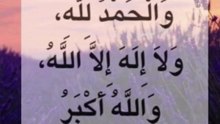 وَالْحَمْدُ لِلَّهِ،
وَلاَ إِلَهَ إِلاَّ اللَّهُ،
وَاللَّهُ أَكْبَرُ